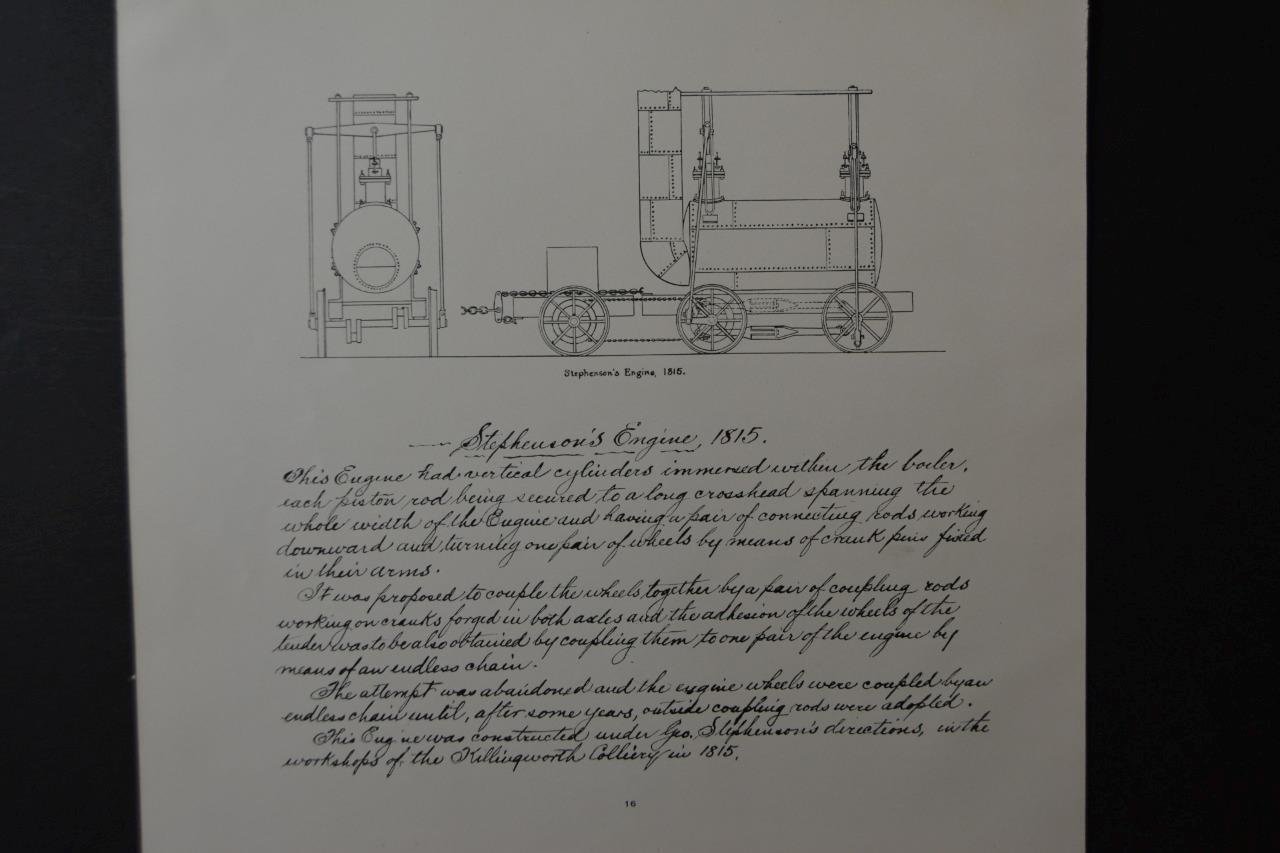 Stephenson's Engine, 1815.
Stephenson's Engine, 1815.
This Engine had vertical cylinders immersed within the boiler,
each piston rod being secured to a long crosshead spanning the
whole width of the Engine and having a pair of connecting rods working
downward and turning one pair of wheels by means of crank pins fixed
in their arms.
It was proposed to couple the wheels together by a pair of coupling rods
working on cranks forged in both axles and the adhesion of the wheels of the
tender was to be also obtained by coupling them to one pair of the engine by
means of an endless chain.
The attempt was abandoned and the engine wheels were coupled by an
endless chain until, after some years, outside coupling rods were adopted.
This Engine was constructed under Geo. Stephenson's directions, in the
workshops of the Killingworth Colliery in 1815.
16